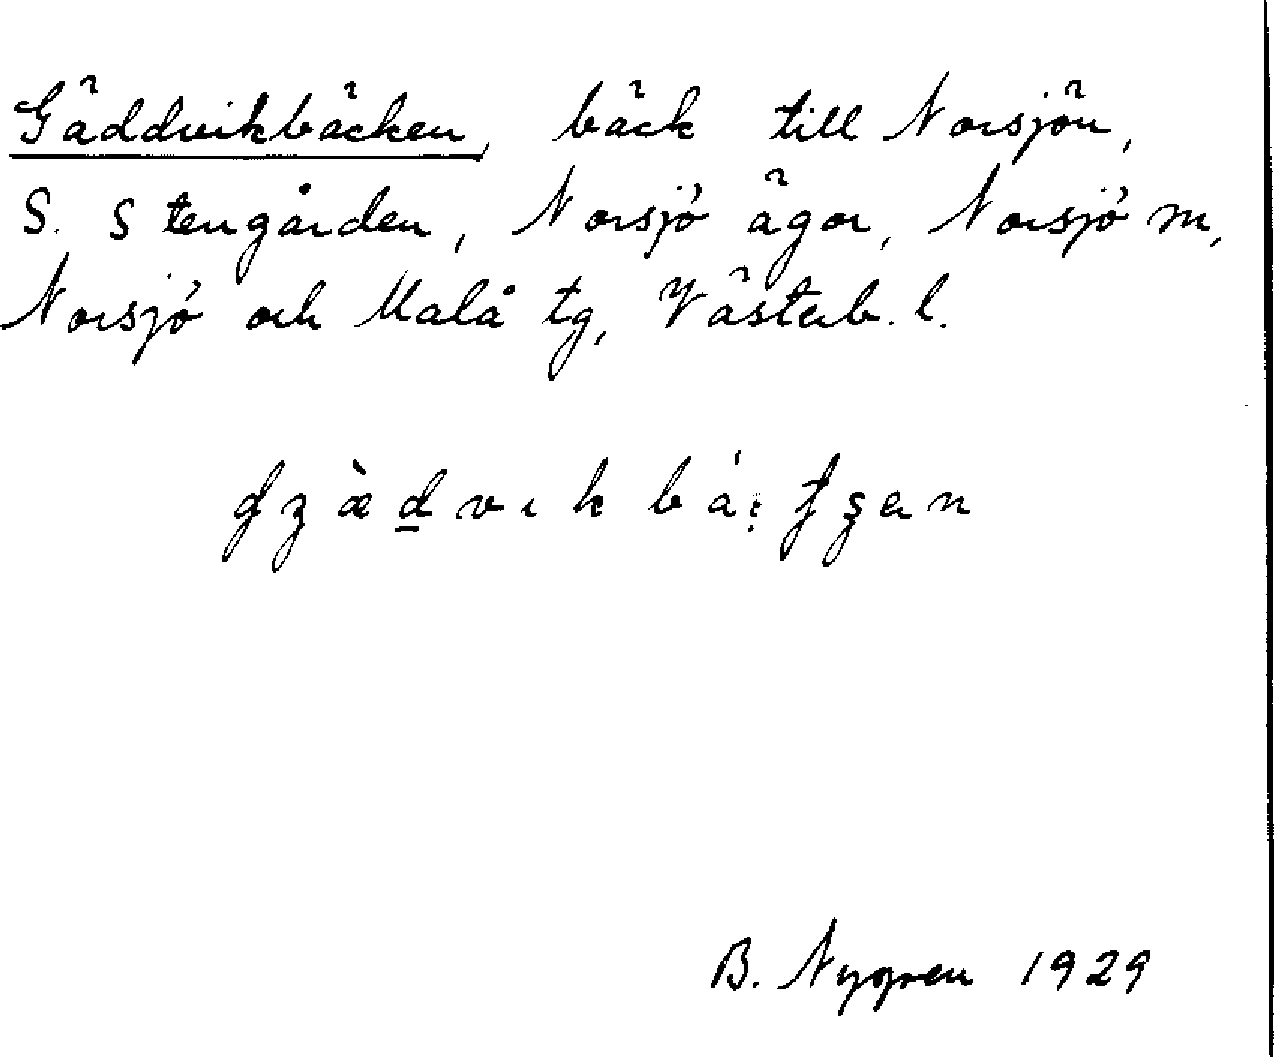 Gäddvikbäcken, bäck till Norsjön,
S. Stengården, Norsjö ägor, Norsjö m,
Norsjö och Malå tg, Västerb. l.
B. Nygren 1929